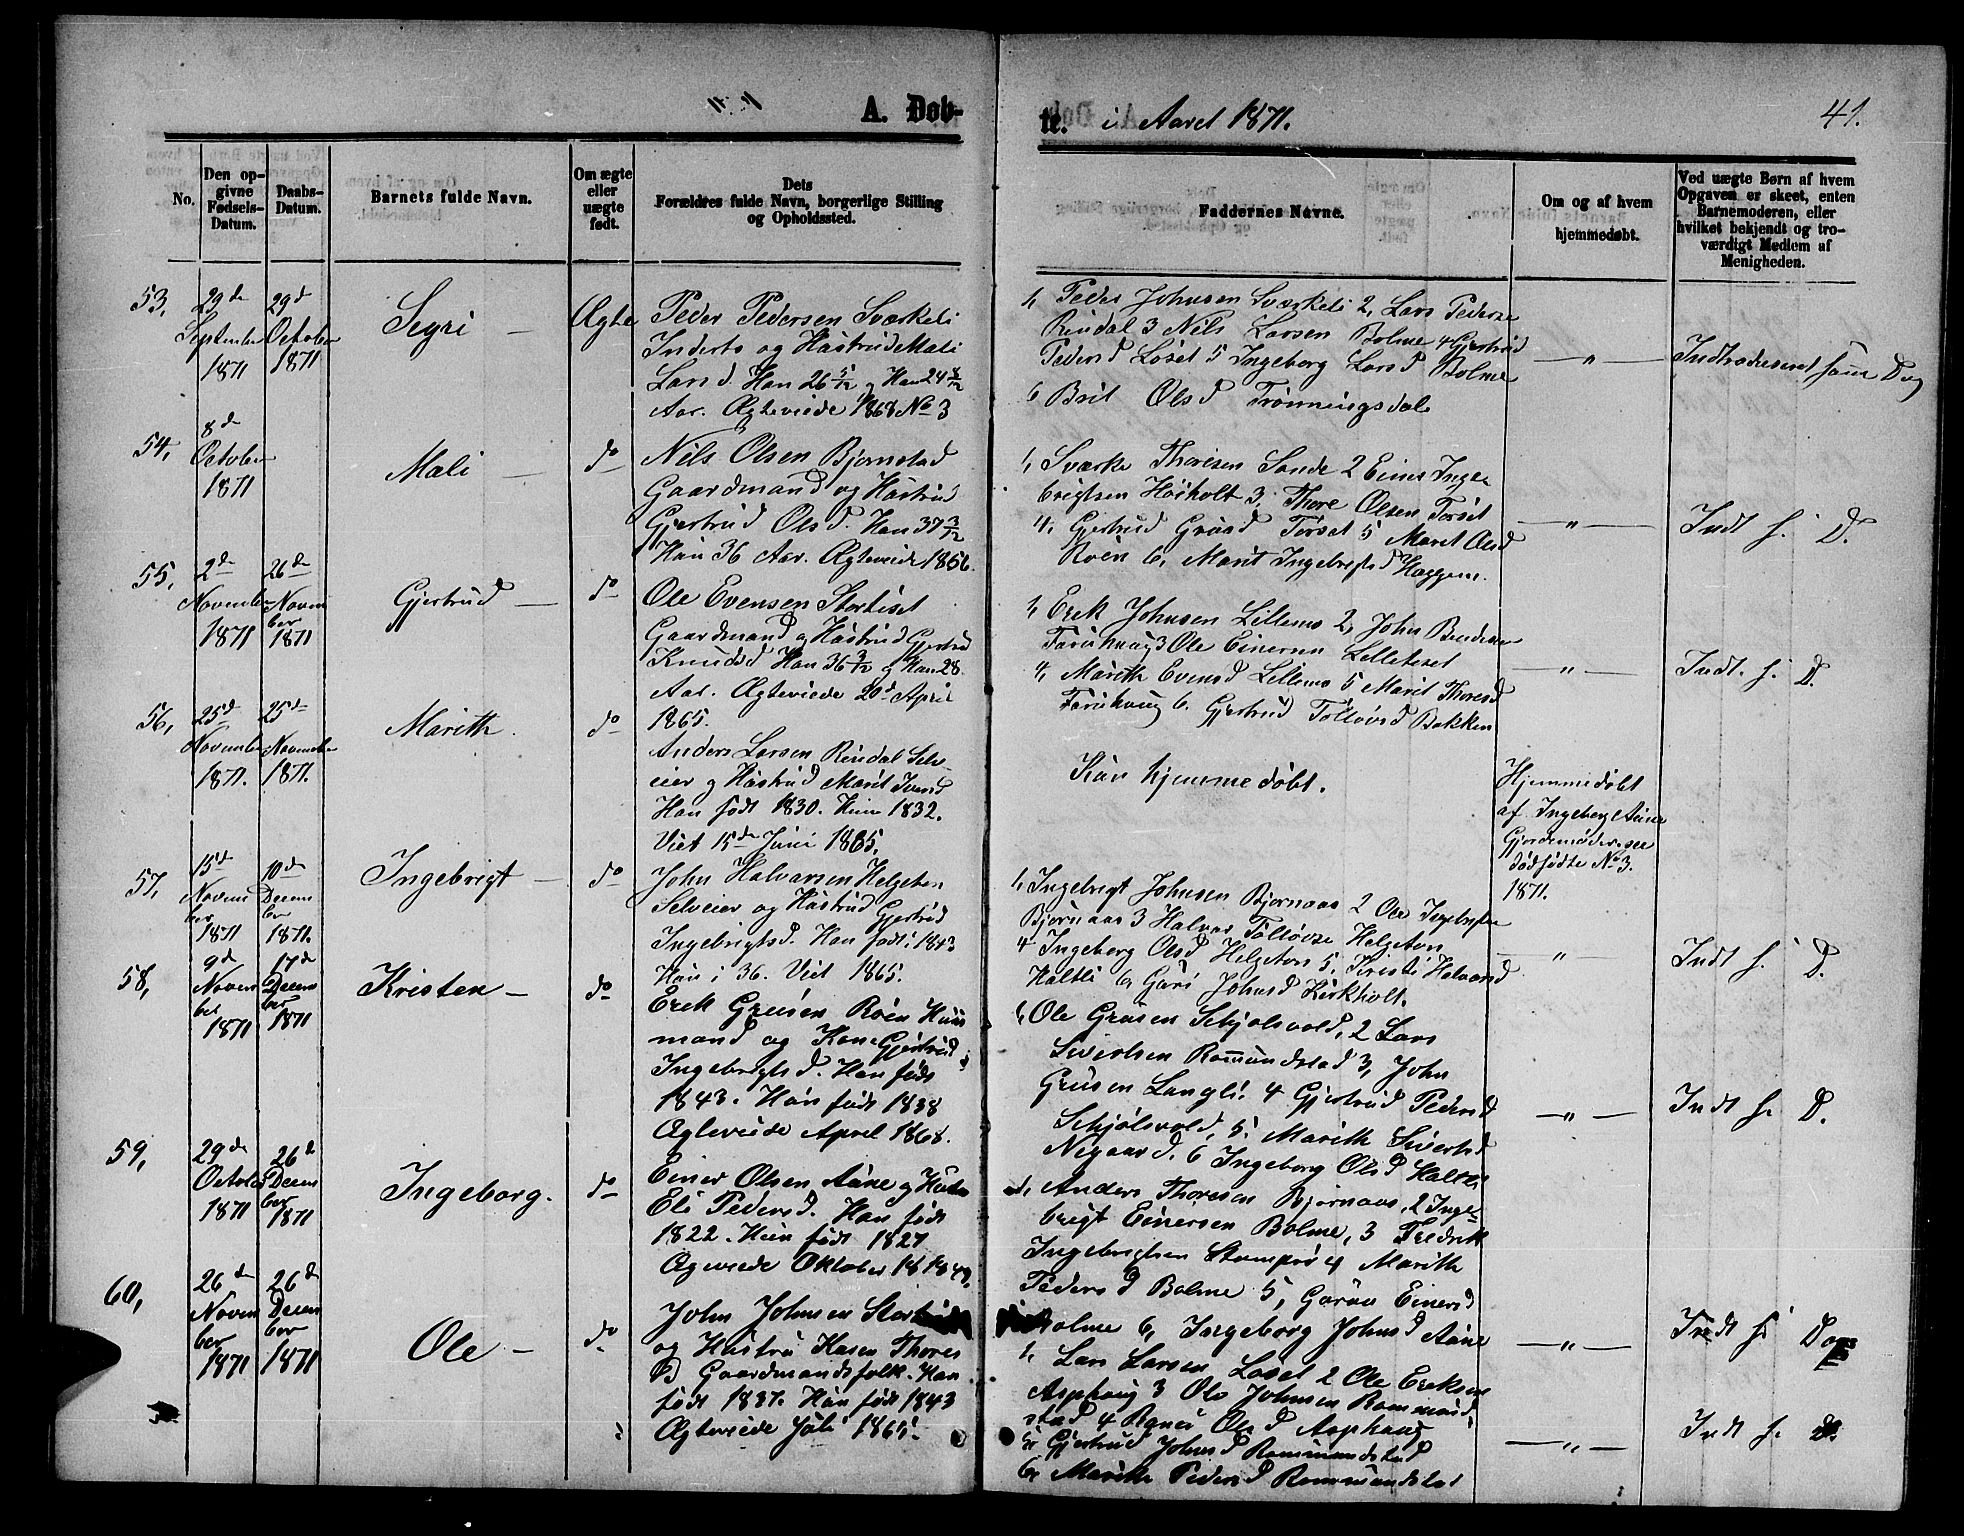 A. Døb-
te. i Aaret 1871.
41.
No.
Den op-
givne
Fødsels-
Datum.
Daabs-
Datum.
Barnets fulde Navn.
Om ægte
eller
uægte
født.
Dets
Forældres fulde Navn, borgerlige Stilling
og Opholdssted.
Faddernes Navne.
Om og af hvem
hjemmedøbt.
Ved uægte Børn af hvem
Opgaven er skeet, enten
Barnemoderen, eller
hvilket bekjendt og tro-
værdigt Medlem af
Menigheden.
53,
29de
September
1871
29d
October
1871
Segri
Ægte
Peder Pedersen Sværkeli
Inderts og Hustrue Mali
Larsd. Han 26 5/12 og Hun 24 8/12
Aar. Ægteviede 1868 No 3
1, Peder Johnsen Sværkeli 2, Lars Pederse
Rindal 3 Nils Larsen Bolme 4 Gjertrud
Pedersd Løset 5 Ingeborg Larsd Bolme
6 Brit Olsd Trønningsdal
— " —
Indtroduseret same Dag
54,
8d
October
1871
Mali
do
Nils Olsen Bjørnstad
Gaardmand og Hustrue
Gjertrud Olsd. Han 37 3/12
Hun 36 Aar. Ægteviede 1856.
1, Sværke Thoresen Sande 2 Einer Inge
brigtsen Høiholt 3, Thore Olsen Torset
4, Gjertrud Gruesd Torset 5 Maret Olsd
Roen 6, Marit Ingebrigtsd Haggen.
— " —
Indt s. D.
55,
2de
November
1871
26de
Novem
ber
1871
Gjertrud
do
Ole Evensen Stortiset
Gaardmand og Hustrue Gjertrud
Knudsd Han 36 3/12 og Hun 28
Aar. Ægteviede 20d April
1865.
1, Erik Johnsen Lillemo 2, John
3 Ole Lilleteset
4, Marith Evensd Lillemo 5 Marit Thoresd
6, Gjertrud Tølløvsd Bakken
— " —
Indt. s. D.
56,
25d
November
1871.
25d
November
1871.
Marith
do
Anders Larsen Rindal Selv
eier og Hustrue Marit Iversd
Han født 1830. Hun 1832.
Viet 15de Juni 1865.
Kun hjemmedøbt.
Hjemmedøbt
af Ingeborg Aune
Gjordemoder see
dødfødte No 3.
1871.
57,
15d
Novem
ber
1871
10de
Decem
ber
1871.
Ingebrigt
do
John Halvarsen Helgeton
Selveier og Hustrue Gjertrud
Ingebrigtsd. Han født 1843
Hun i 36. Viet 1865.
1, Ingebrigt Johnsen Bjørnaas 2 Ole
Bjørnaas 3 Halvor Tølløvse Helgeton
4 Ingeborg Olsd Helgeton 5, Kristi Halvorsd
Haltli 6, Guri Johnsd Kirkholt.
— " —
Indt s. D.
58,
9d
Novem
ber
1871
17de
Decem
ber
1871
Kristen
do
Erik Gruesen Roen Huus
mand og Kone Gjertrud
Ingebrigtsd. Han født
1843. Hun født 1838
Ægteviede April 1868.
1, Ole Gruesen Skjølsvold, 2 Lars
Sivertsen Romundstad 3, John
Gruesen Langli. 4 Gjertrud Pedersd
Skjølsvold, 5. Marith Sivertsd
Negaard. 6 Ingeborg Olsd Haltli
— " —
Indt s. D.
59,
29de
October
1871
26de
Decem
ber
1871
Ingeborg.
do
Einer Olsen Aune og Hustru
Eli Pedersd. Han født
1822. Hun født 1827
Ægteviede Oktober 18 1849.
1, Anders Thoresen Bjørnaas, 2 Inge-
brigt Einersen Bolme, 3 Fredrik
Ingebrigtsen Stomprø 4 Marith
Pedersd Bolme 5, Guroa Einersd
Bolme 6, Ingeborg Johnsd Aune
— " —
Indt s. Dag
60,
26de
Novem
ber
1871
26de
Decem
ber
1871
Ole
do
John Johnsen
og Hustru Karen Thores
D Gaardmandsfolk. Han
født 1837. Hun født 1843
Ægteviede Juli 1865.
1, Lars Larsen Løset 2 Ole Eriksen
Asphaug 3 Ole Johnsen Rommund
stad 4 Olsd Asphaug
5, Gjertrud Johnsd Rommundstad
6, Marith Pedersd Rommundstad
— " —
Indt s. D.